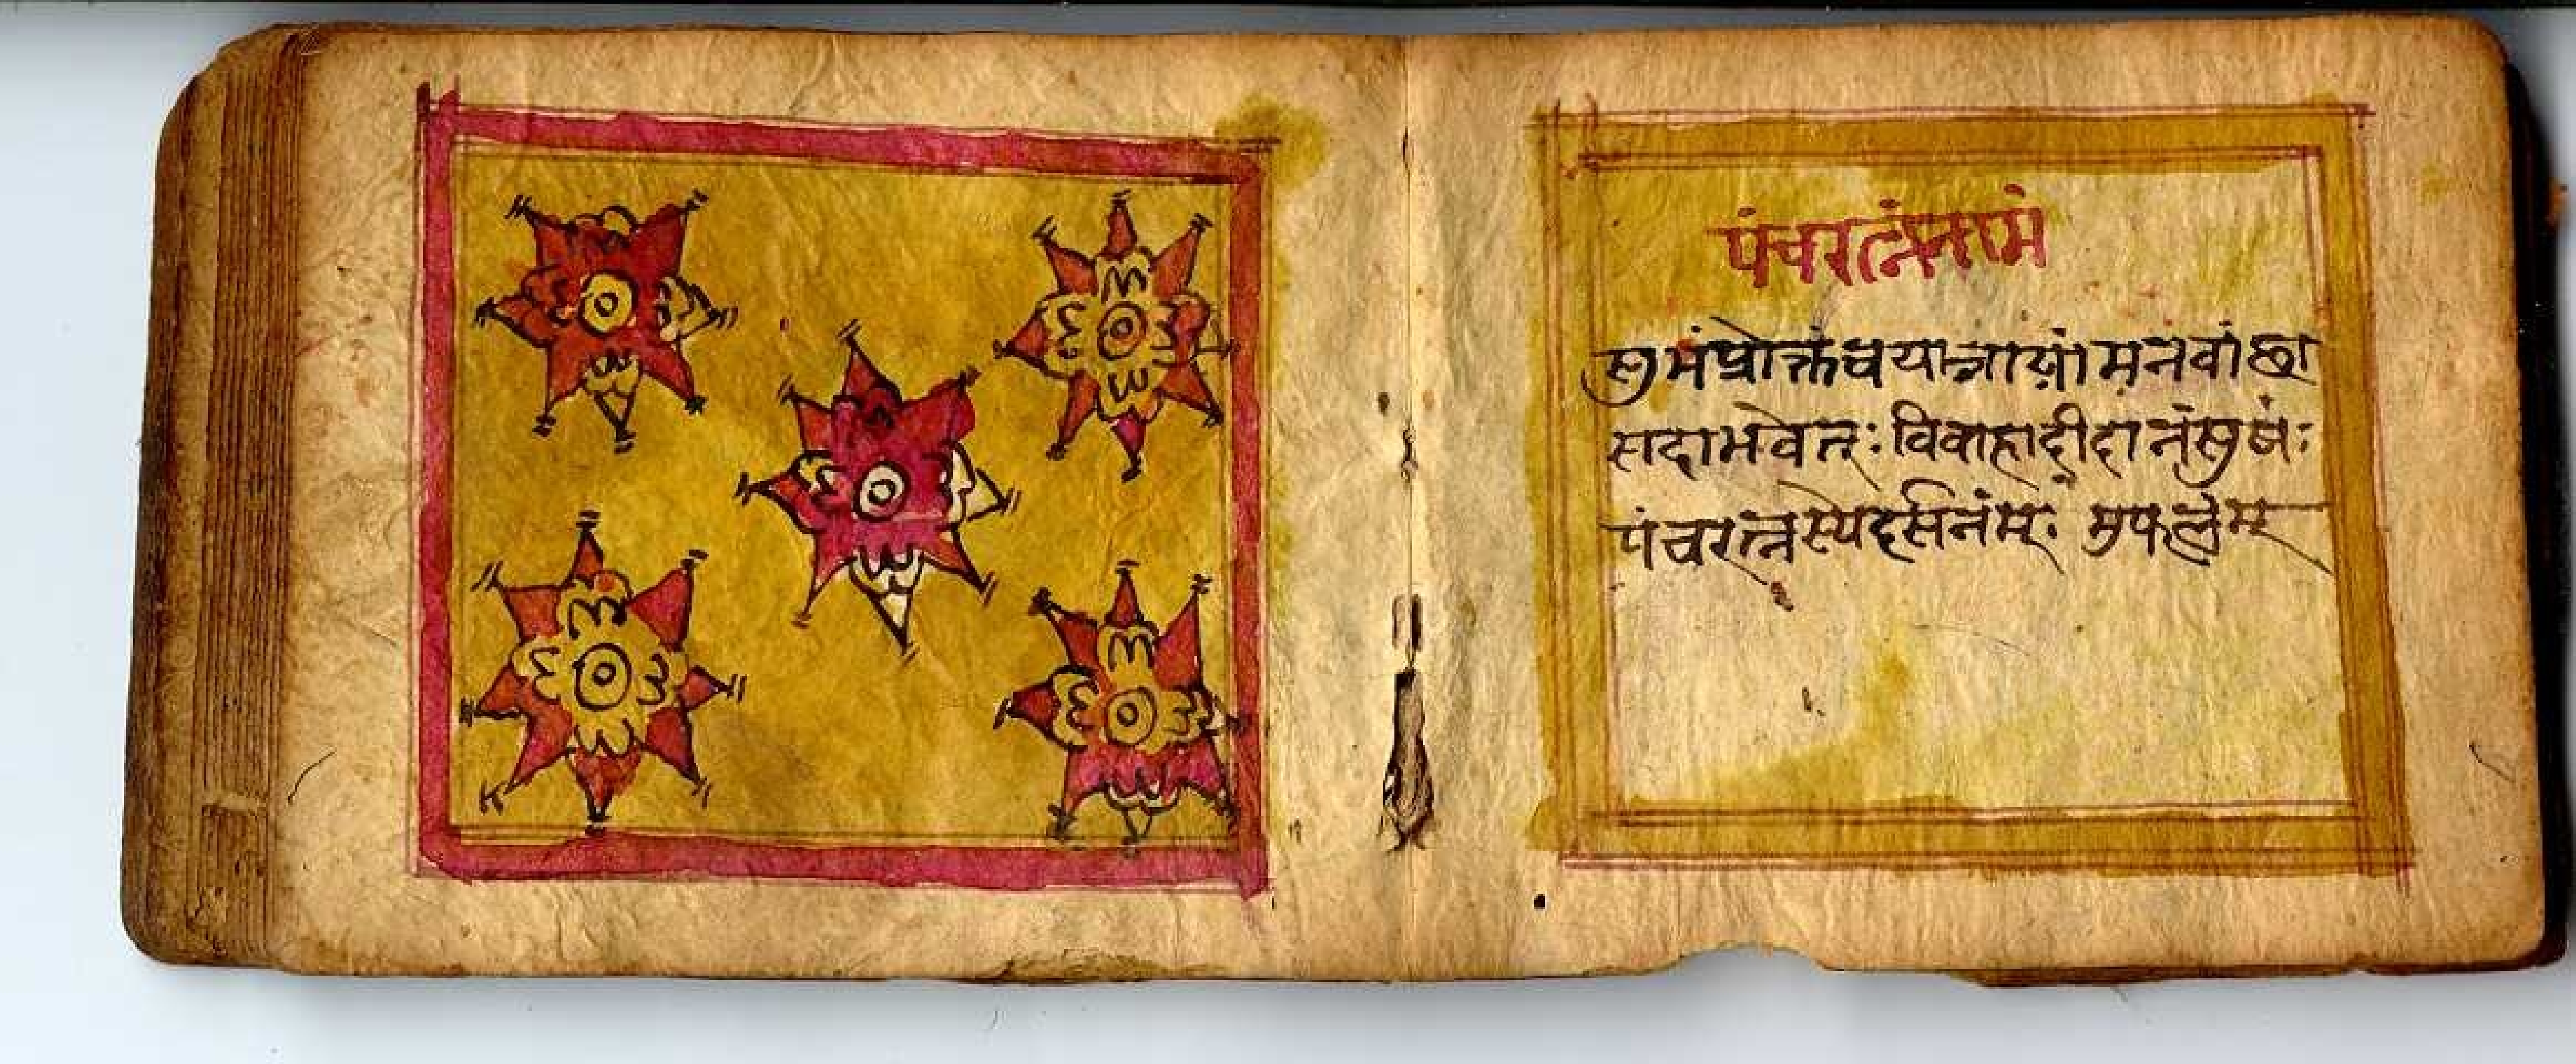 पंचरत्नंनामं
सुभंप्रोक्तंवयात्रायां मनवांछा
सदाभवेत्: विवाहादीदानंसुषं:
पंचरत्नस्येदर्सनंम्: सुफलंम्